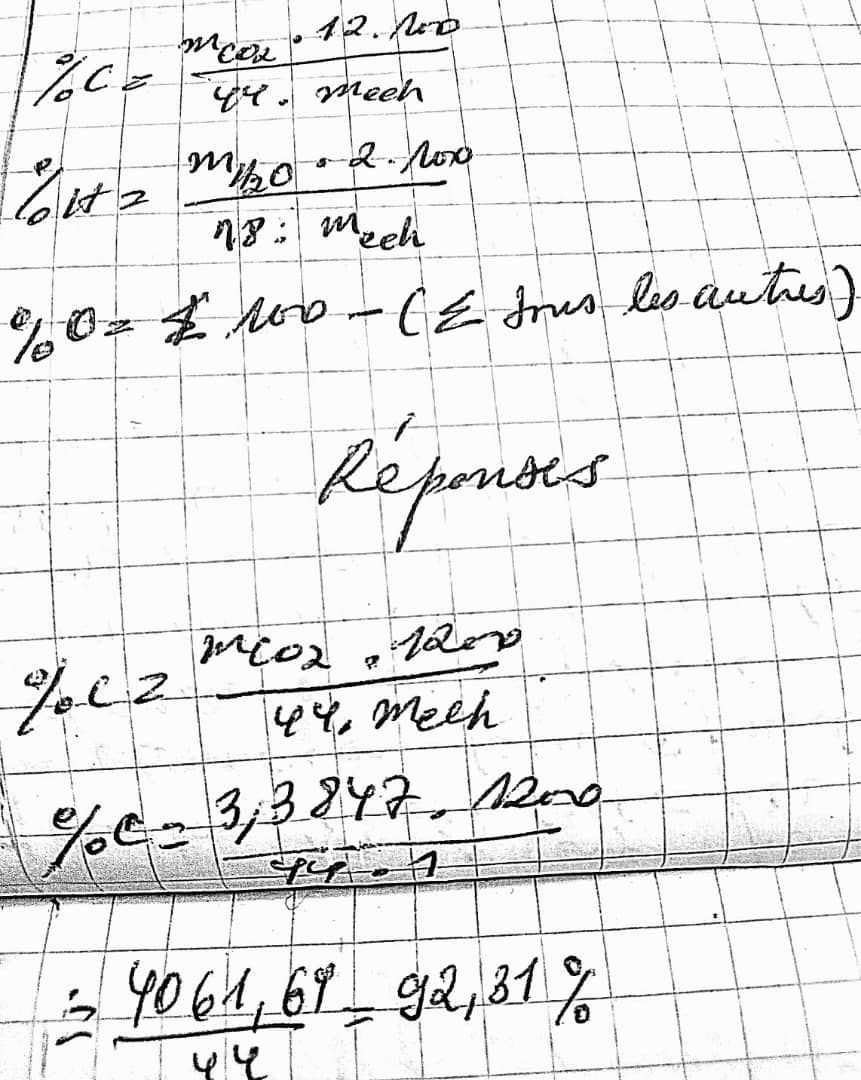 %C = mCO2 . 12 . 100 / 44 . mech
%H = mH2O . 2 . 100 / 18 . mech
%O = 100 - (Σ tous les autres)
Réponses
%C = mCO2 . 1200 / 44 . mech
%C = 3,3847 . 1200 / 44 . 1
= 4061,64 / 44 = 92,31 %